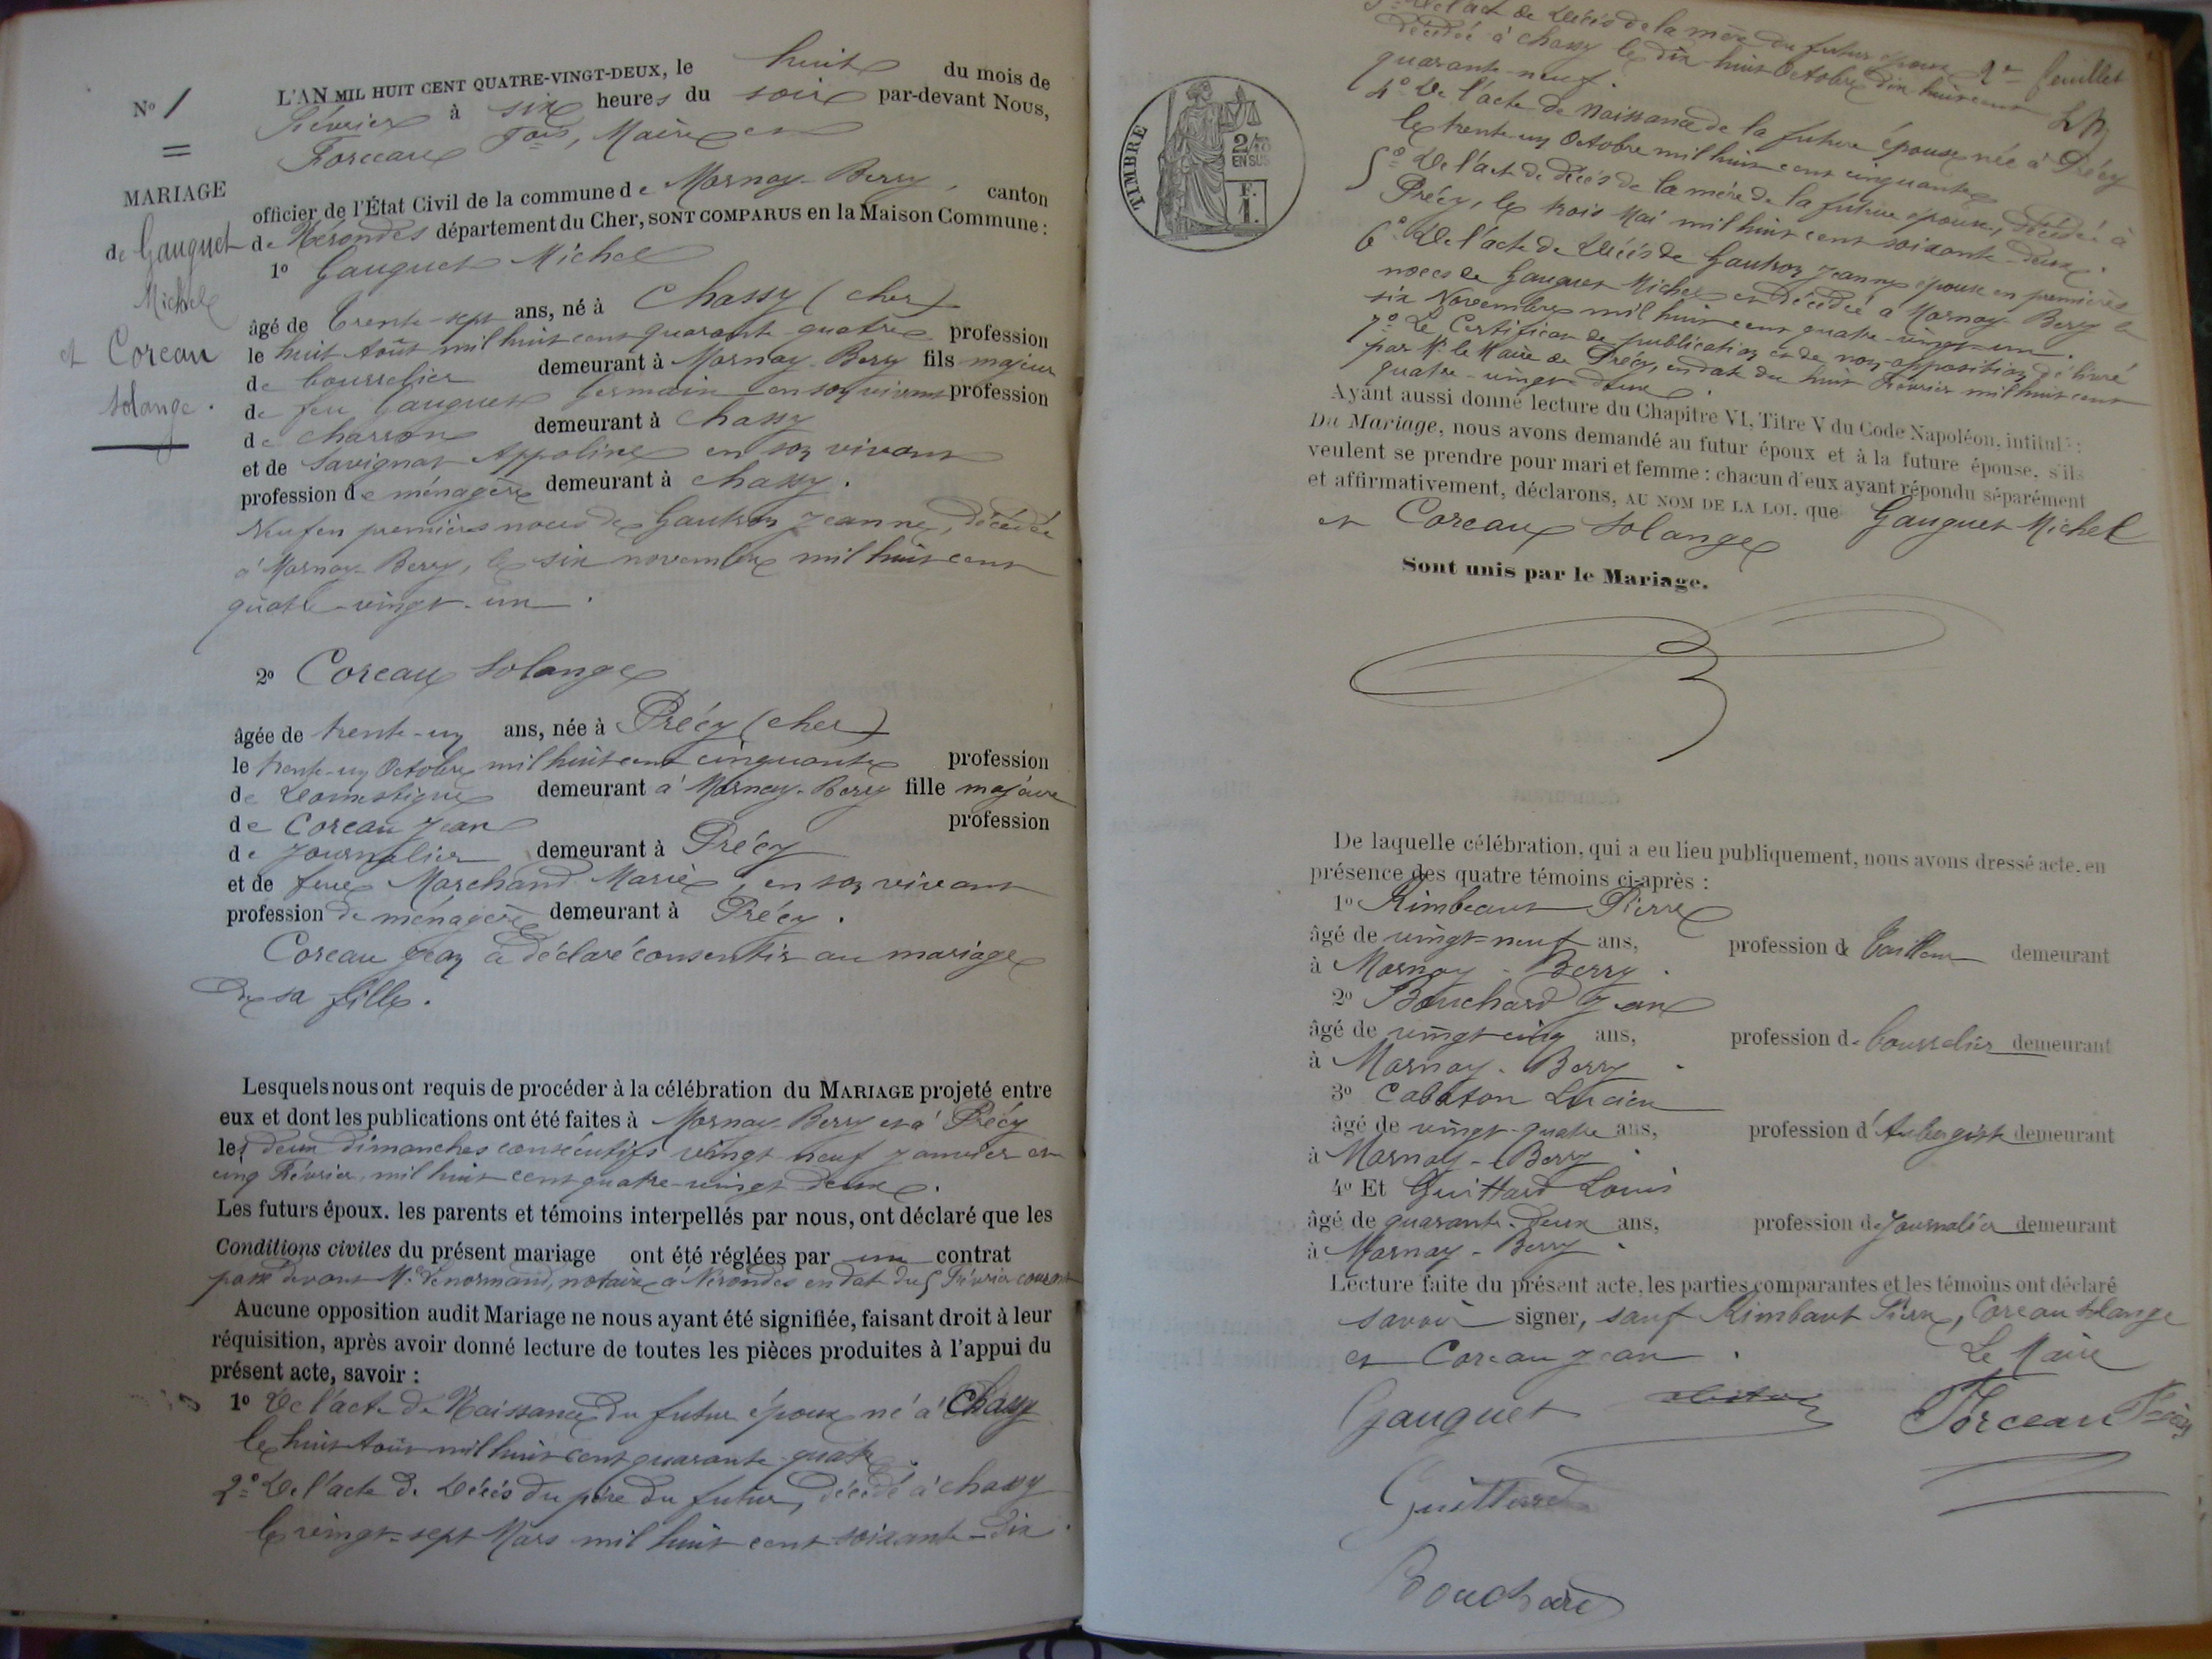 N° 1
L'AN MIL HUIT CENT QUATRE-VINGT-DEUX, le huit du mois de
Février à six heures du soir par-devant Nous,
Forceau Fois, Maire et
officier de l'État Civil de la commune de Mornay-Berry, canton
de Nérondes département du Cher, SONT COMPARUS en la Maison Commune :
MARIAGE
de Gauguet
Michel
et Coreau
Solange.
1° Gauguet Michel
âgé de trente-sept ans, né à Chassy (cher)
le huit Août mil huit cent quarante-quatre profession
de bourrelier demeurant à Mornay-Berry fils majeur
de feu Gauguet Germain en son vivant profession
de charron demeurant à Chassy
et de Savignat Appoline en son vivant
profession de ménagère demeurant à Chassy.
Veuf en premières noces de Gautron Jeanne, décédée
à Mornay-Berry, le six novembre mil huit cent
quatre-vingt-un.
2° Coreau Solange
âgée de trente-un ans, née à Précy (cher)
le trente-un Octobre mil huit cent cinquante profession
de Domestique demeurant à Mornay-Berry fille majeure
de Coreau Jean profession
de Journalier demeurant à Précy
et de feue Marchand Marie, en son vivant
profession de ménagère demeurant à Précy.
Coreau Jean a déclaré consentir au mariage
de sa fille.
Lesquels nous ont requis de procéder à la célébration du MARIAGE projeté entre
eux et dont les publications ont été faites à Mornay-Berry et à Précy
les deux dimanches consécutifs vingt-neuf Janvier et
cinq Février, mil huit cent quatre-vingt-deux.
Les futurs époux. les parents et témoins interpellés par nous, ont déclaré que les
Conditions civiles du présent mariage ont été réglées par un contrat
passé devant Me Lenormand, notaire à Nérondes en date du 5 Février courant
Aucune opposition audit Mariage ne nous ayant été signifiée, faisant droit à leur
réquisition, après avoir donné lecture de toutes les pièces produites à l'appui du
présent acte, savoir :
1° De l'acte de Naissance du futur époux né à Chassy
le huit Août mil huit cent quarante-quatre.
2° De l'acte de Décès du père du futur, décédé à Chassy
le vingt-sept Mars mil huit cent soixante-dix.
3° De l'act de Décès de la mère du futur époux
décédée à Chassy le dix-huit Octobre dix huit cent
quarante-neuf.
2e feuillet
TIMBRE
2/10
EN SUS
4° De l'acte de Naissance de la future épouse née à Précy
le trente-un Octobre mil huit cent cinquante
5° De l'act de décès de la mère de la future épouse, décédée à
Précy, le trois Mai mil huit cent soixante-deux.
6° De l'acte de Décès de Gautron Jeanne épouse en premières
noces de Gauguet Michel et décédée à Mornay-Berry le
six Novembre mil huit cent quatre-vingt-un.
7° Le Certificat de publication et de non-opposition délivré
par Mr le Maire de Précy, en date du huit Février mil huit cent
quatre-vingt-deux.
Ayant aussi donné lecture du Chapitre VI, Titre V du Code Napoléon, intitulé :
Du Mariage, nous avons demandé au futur époux et à la future épouse, s'ils
veulent se prendre pour mari et femme : chacun d'eux ayant répondu séparément
et affirmativement, déclarons, AU NOM DE LA LOI, que Gauguet Michel
et Coreau Solange
Sont unis par le Mariage.
De laquelle célébration, qui a eu lieu publiquement, nous avons dressé acte, en
présence des quatre témoins ci-après :
1° Rimbaut Pierre
âgé de vingt-neuf ans, profession de Tailleur demeurant
à Mornay-Berry.
2° Bouchard Jean
âgé de vingt cinq ans, profession de bourrelier demeurant
à Mornay-Berry.
3° Cabaton Lucien
âgé de vingt-quatre ans, profession d'Aubergiste demeurant
à Mornay-Berry.
4° Et Guittard Louis
âgé de quarante-deux ans, profession de Journalier demeurant
à Mornay-Berry.
Lecture faite du présent acte, les parties comparantes et les témoins ont déclaré
savoir signer, sauf Rimbaut Pierre, Coreau Solange
et Coreau Jean.
Le Maire
Gauguet
Forceau
Guittard
Bouchard